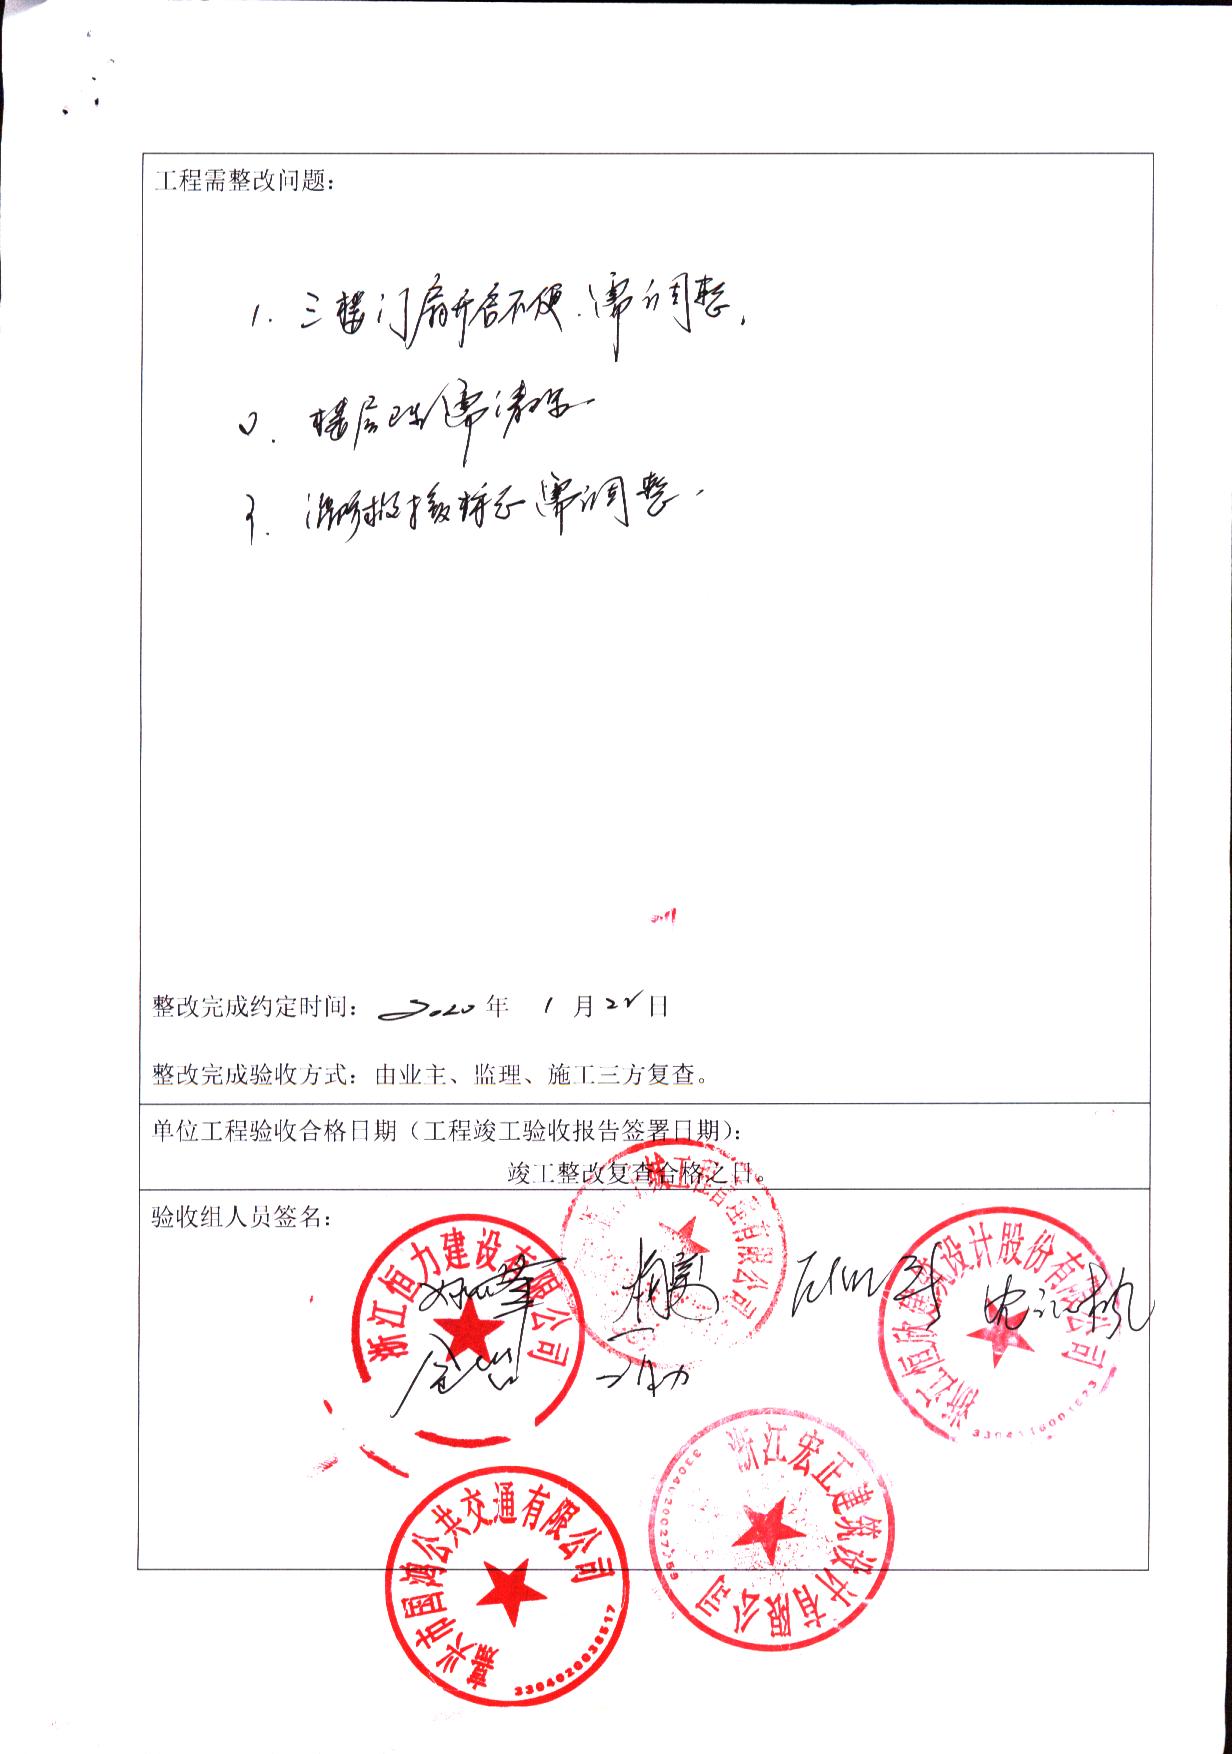 工程需整改问题：
1. 三楼门扇开启不便，需调整，
2. 楼层 需清
3. 需调整.
整改完成约定时间： 2020 年 1 月 22 日
整改完成验收方式：由业主、监理、施工三方复查。
单位工程验收合格日期（工程竣工验收报告签署日期）：
竣工整改复查合格之日。
验收组人员签名：
浙江恒力建设有限公司
工程管理有限公司
浙江恒欣建筑设计股份有限公司
嘉兴市国鸿公共交通有限公司
3304020036517
浙江宏正建筑设计有限公司